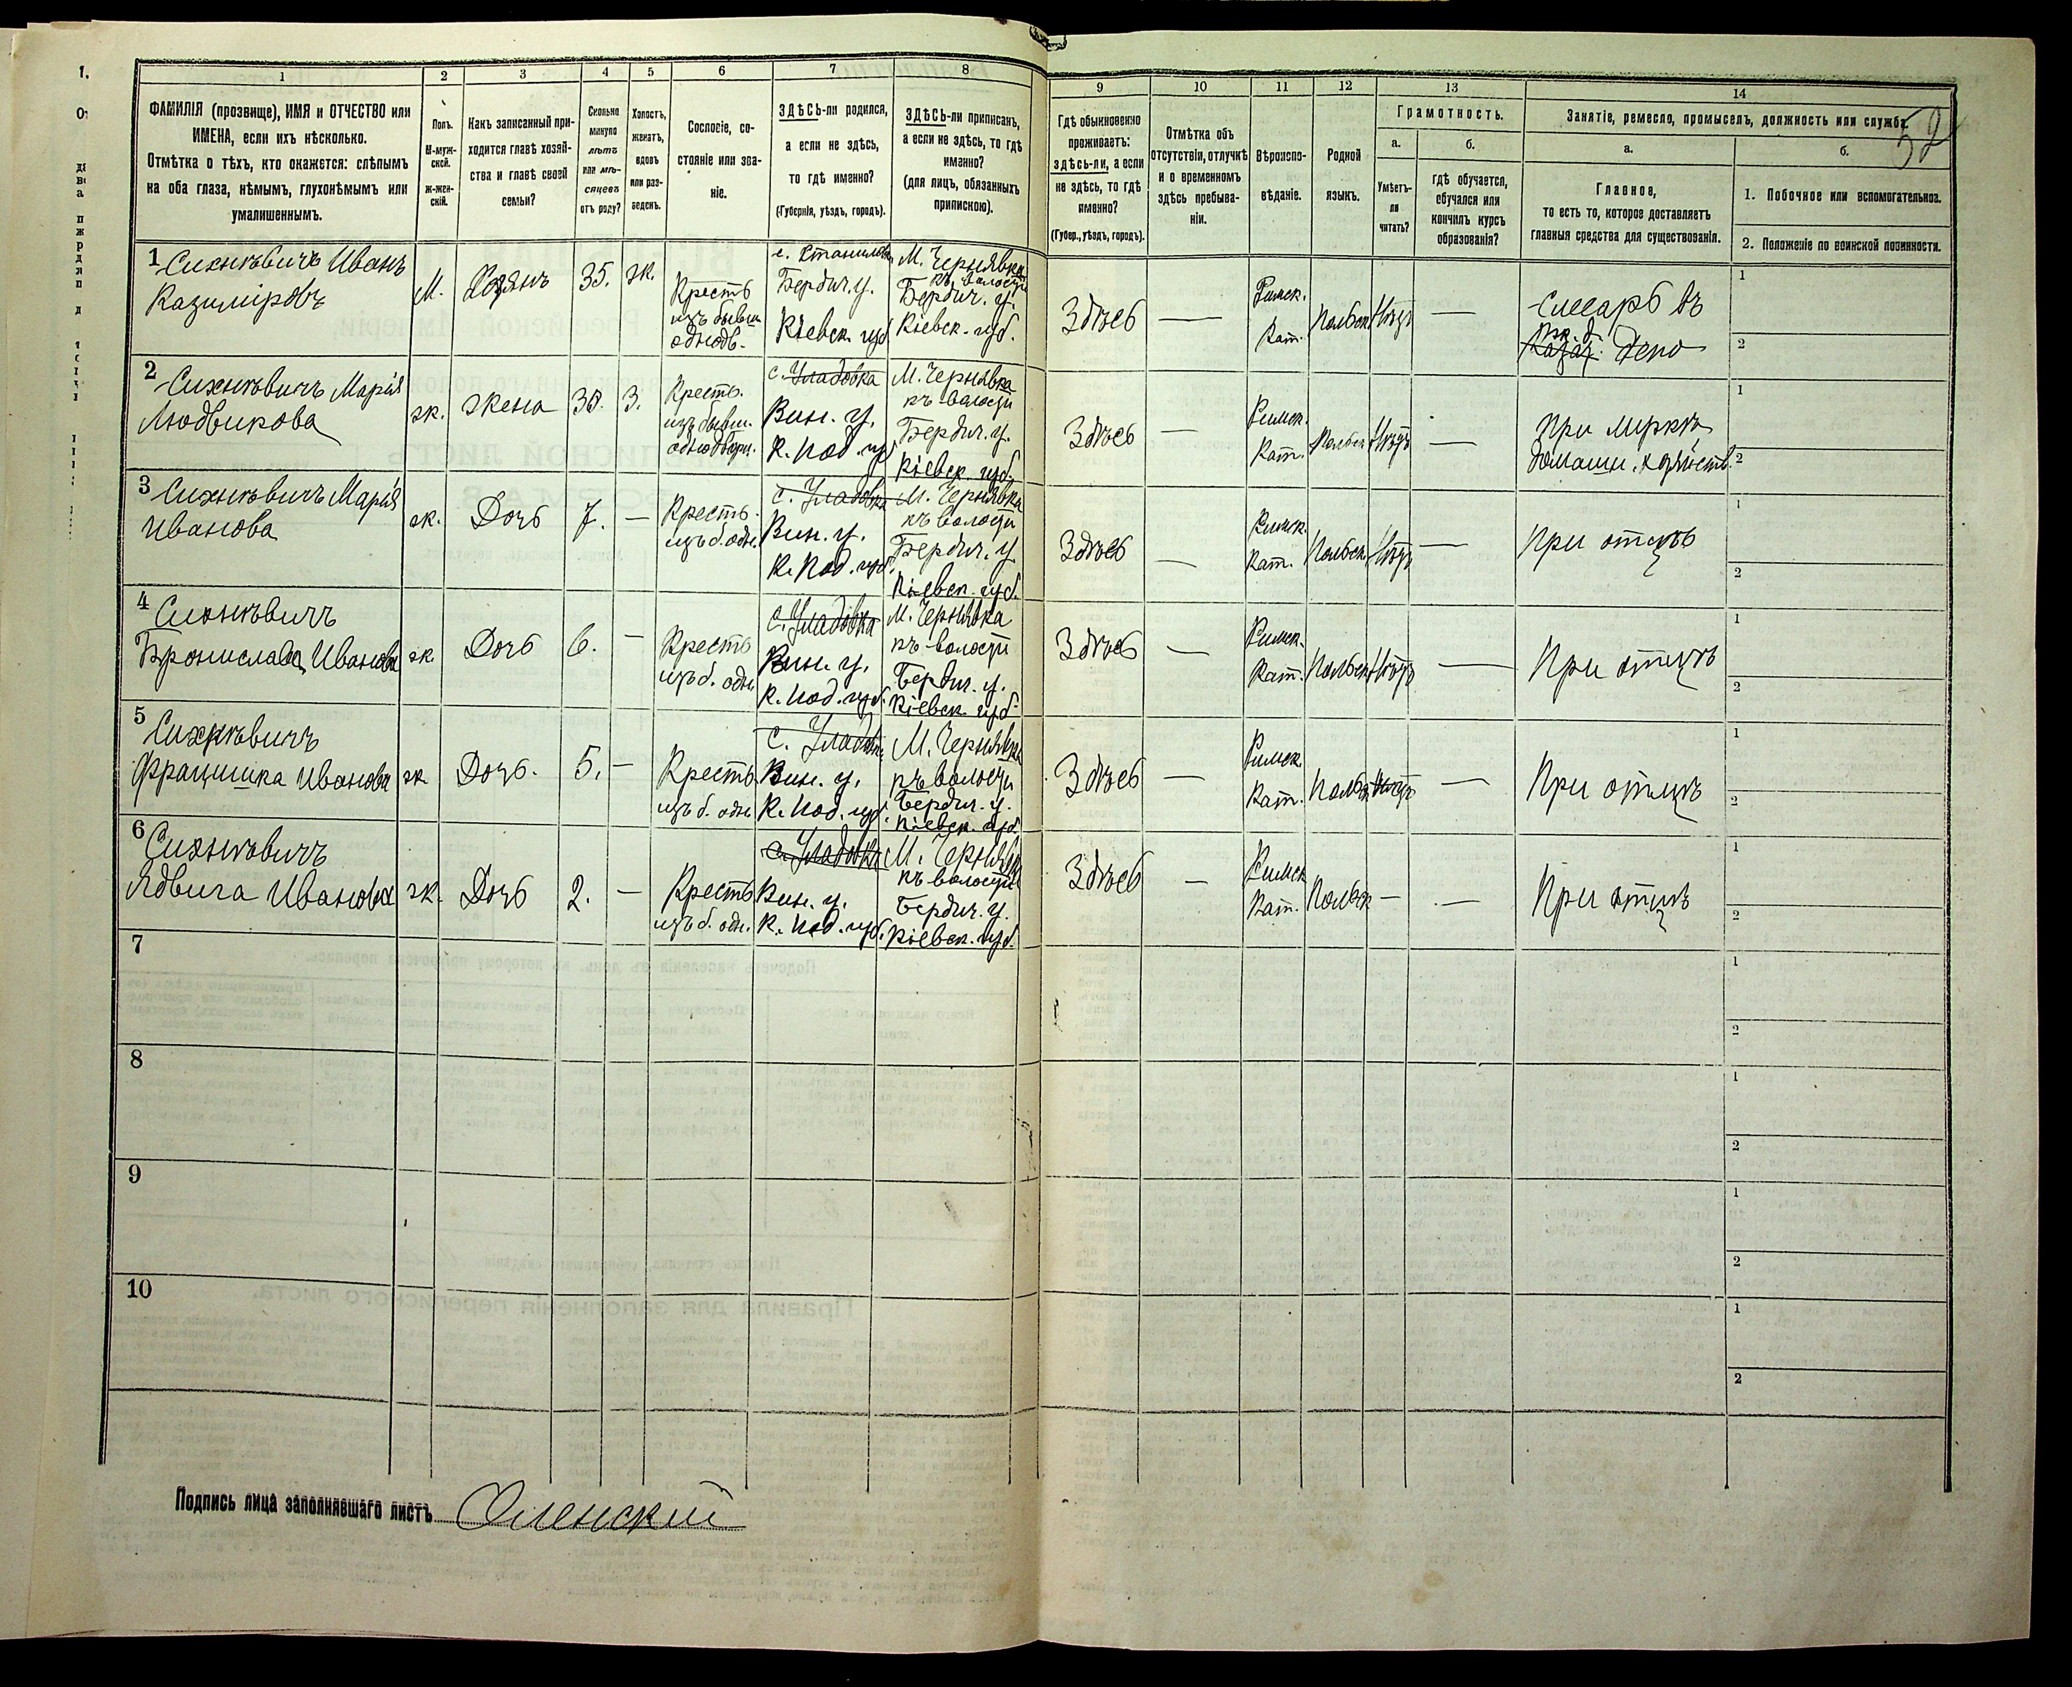 1 2 3 4 5 6 7 8 9 10 11 12 13 14
52
ФАМИЛІЯ (прозвище), ИМЯ и ОТЧЕСТВО или
ИМЕНА, если ихъ нѣсколько.
Отмѣтка о тѣхъ, кто окажется: слѣпымъ
на оба глаза, нѣмымъ, глухонѣмымъ или
умалишеннымъ.
Полъ.
М-муж-
ской.
ж-жен-
скій.
Какъ записанный при-
ходится главѣ хозяй-
ства и главѣ своей
семьи?
Сколько
минуло
лѣтъ
или мѣ-
сяцевъ
отъ роду?
Холостъ,
женатъ,
вдовъ
или раз-
веденъ.
Сословіе, со-
стояніе или зва-
ніе.
ЗДѢСЬ-ли родился,
а если не здѣсь,
то гдѣ именно?
(Губернія, уѣздъ, городъ).
ЗДѢСЬ-ли приписанъ,
а если не здѣсь, то гдѣ
именно?
(для лицъ, обязанныхъ
припискою).
Гдѣ обыкновенно
проживаетъ:
здѣсь-ли, а если
не здѣсь, то гдѣ
именно?
(Губер., уѣздъ, городъ).
Отмѣтка объ
отсутствіи, отлучкѣ
и о временномъ
здѣсь пребыва-
ніи.
Вѣроиспо-
вѣданіе.
Родной
языкъ.
Грамотность.
а.
Умѣетъ-
ли
читать?
б.
гдѣ обучается,
обучался или
кончилъ курсъ
образованія?
Занятіе, ремесло, промыселъ, должность или служба.
а.
Главное,
то есть то, которое доставляетъ
главныя средства для существованія.
б.
1. Побочное или вспомогательное.
2. Положеніе по воинской повинности.
1
Иванъ
Казиміровъ
М.
35.
ж.
Кресть
изъ бывш.
однодв.
Бердич. у.
Кіевск. губ.
М. Чернявка
Бердич. у.
Кіевск. губ.
Здѣсь
Римск.
Кат.
Польск
Нѣтъ
Слесарь въ
депо
1
2
2
Марія
Людвикова
ж.
жена
З.
Кресть.
изъ бывш.
с. Уладовка
Вин. у.
К. Под. губ
М. Чернявка
къ волости
Бердич. у.
Кіевск. губ.
Здѣсь
Римск.
Кат.
Польск
Нѣтъ
При
домашн. хозяйств.
1
2
3
Марія
Иванова
ж.
Дочь
7.
Кресть.
изъ б. одн.
с. Уладовка
Вин. у.
К. Под. губ.
М. Чернявка
къ волости
Бердич. у
Кіевск. губ.
Здѣсь
Римск.
Кат.
Польск
Нѣтъ
При отцѣ
1
2
4
Бронислава Иванова
ж.
Дочь
6.
Кресть
изъ б. одн.
с. Уладовка
Вин. у.
К. Под. губ.
М. Чернявка
къ волости
Бердич. у.
Кіевск. губ.
Здѣсь
Римск.
Кат.
Польск
Нѣтъ
При отцѣ
1
2
5
Францишка Иванова
ж
Дочь.
5.
Кресть
изъ б. одн
с. Уладовка
Вин. у.
К. Под. губ.
М. Чернявка
къ волости
Бердич. у.
Кіевск. губ.
Здѣсь
Римск.
Кат.
Польск
Нѣтъ
При отцѣ
1
2
6
Ядвига Иванова
ж.
Дочь
2.
Кресть
изъ б. одн.
с. Уладовка
Вин. у.
К. Под. губ.
М. Чернявка
къ волости
Бердич. у.
Кіевск. губ.
Здѣсь
Римск
Кат.
Польск
При отцѣ
1
2
7
1
2
8
1
2
9
1
2
10
1
2
Подпись лица заполнявшаго листъ